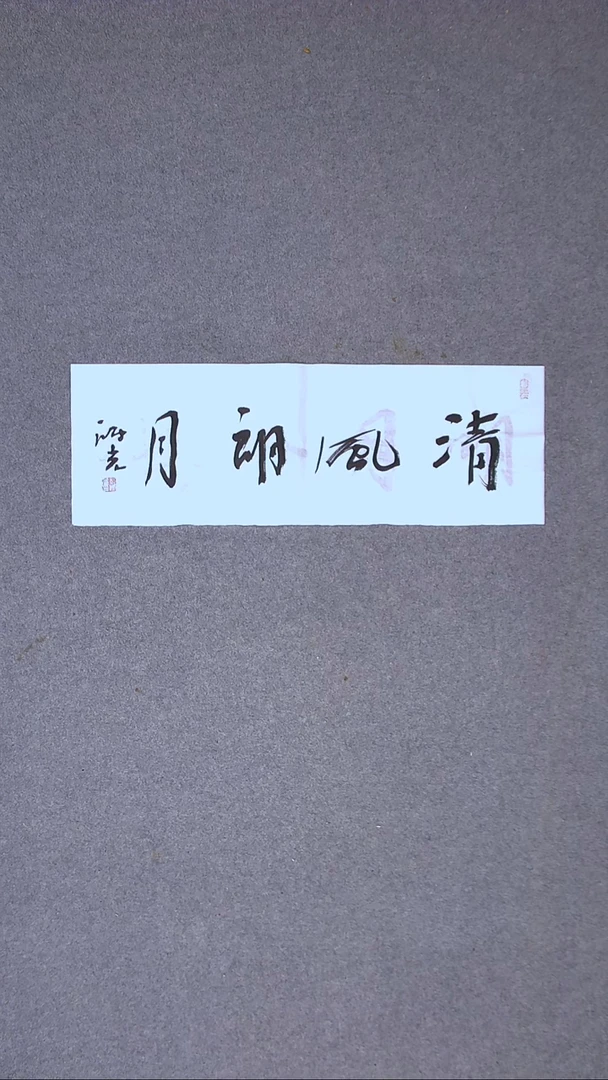 清風朗月